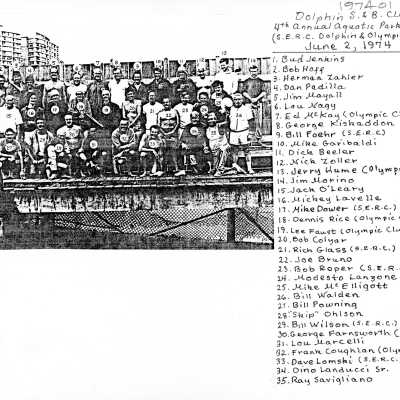 197401
Dolphin S. & B. Clu
4th Annual Aquatic Park
(S.E.R.C. Dolphin & Olympi
June 2, 1974
1. Bud Jenkins
2. Bob Hoff
3. Herman Zahler
4. Dan Padilla
5. Jim Mayall
6. Lou Nagy
7. Ed McKay (Olympic C
8. George Kiskaddon
9. Bill Foehr (S.E.R.C)
10. Mike Garibaldi
11. Dick Beeler
12. Nick Zoller
13. Jerry Hume (Olymp
14. Jim Morino
15. Jack O'Leary
16. Mickey Lavelle
17. Mike Dower (S.E.R.C.)
18. Dennis Rice (Olympic
19. Lee Faust (Olympic Clu
20. Bob Colyar
21. Rich Glass (S.E.R.C.)
22. Joe Bruno
23. Bob Roper (S.E.R.
24. Modesto Lanzone
25. Mike McElligott
26. Bill Walden
27. Bill Powning
28. "Skip" Ohlson
29. Bill Wilson (S.E.R.C.)
30. George Farnsworth (
31. Lou Marcelli
32. Frank Coughlan (Oly
33. Dave Lomski (S.E.R.C.
34. Dino Landucci Sr.
35. Ray Savigliano